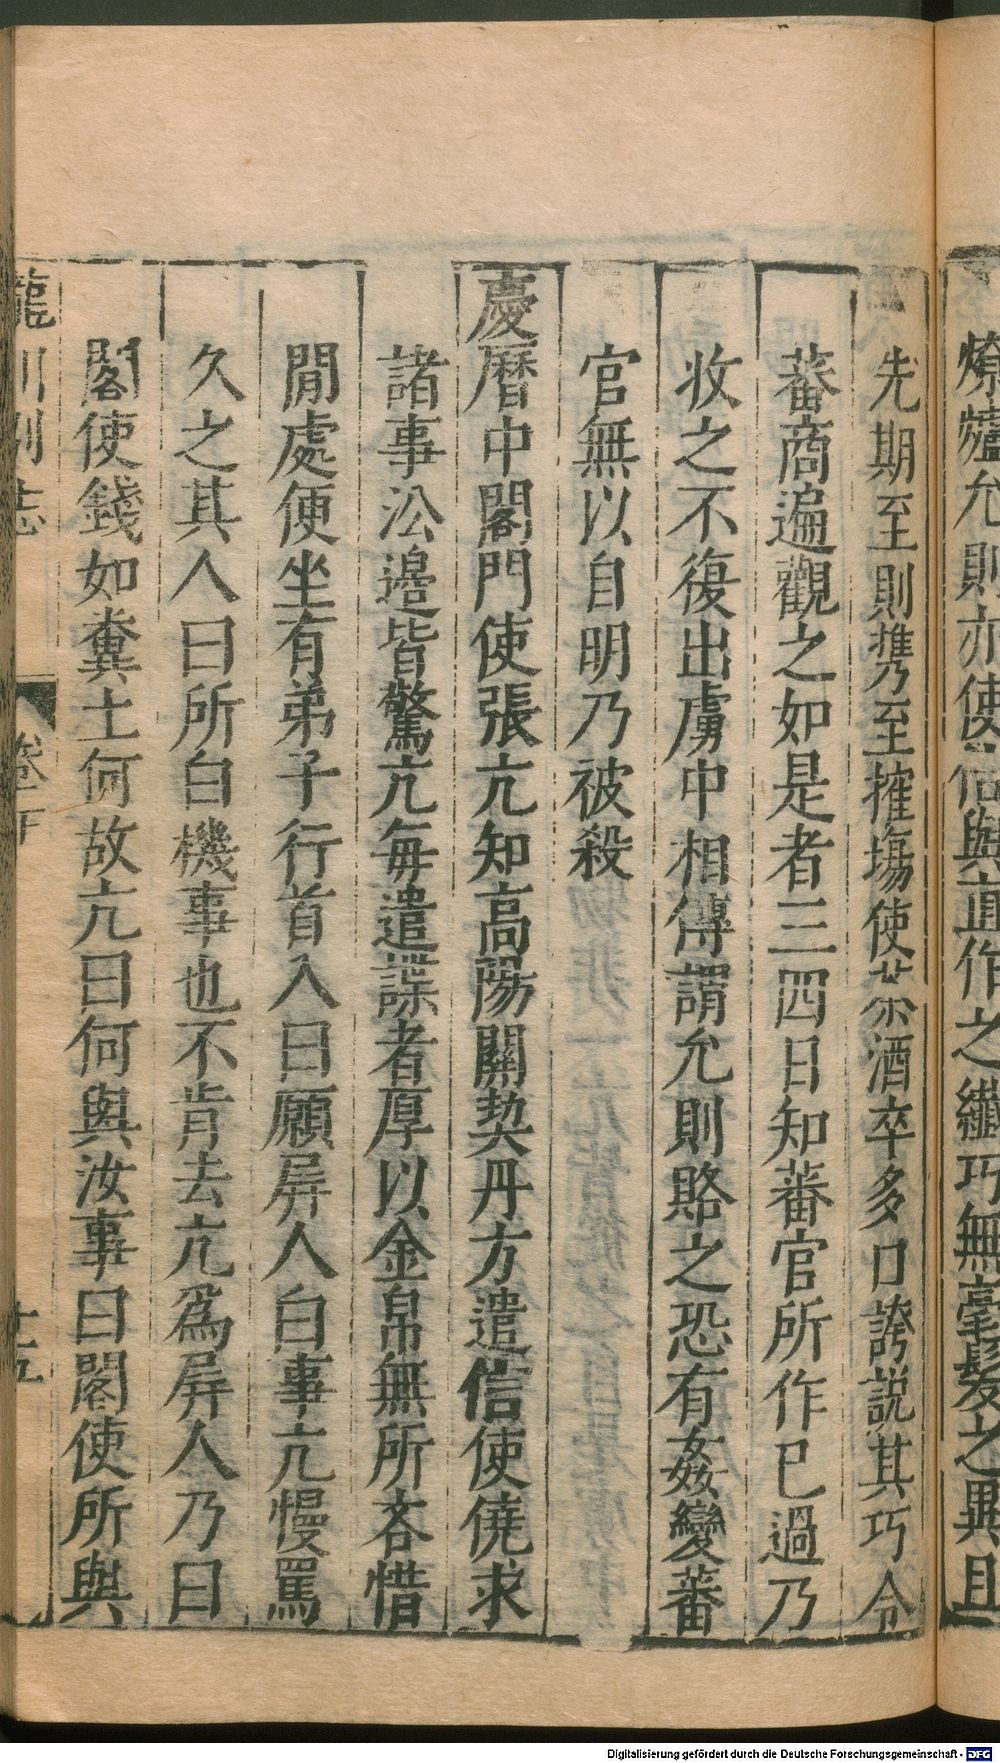 燎爐允則亦使倍與直作之纖巧無毫髮之異且
先期至則携至搉場使茶酒卒多口誇説其巧令
蕃商遍觀之如是者三四日知蕃官所作已過乃
收之不復出虜中相傳謂允則賂之恐有姦變蕃
官無以自明乃被殺
慶曆中閣門使張亢知高陽關契丹方遣信使僥求
諸事㳂邊皆驚亢每遣諜者厚以金帛無所吝惜
閒處便坐有弟子行首入曰願屏人白事亢慢罵
久之其人曰所白機事也不肯去亢爲屏人乃曰
閣使錢如糞土何故亢曰何與汝事曰閣使所與
龍川別志
卷下
十五
Digitalisierung gefördert durch die Deutsche Forschungsgemeinschaft - DFG